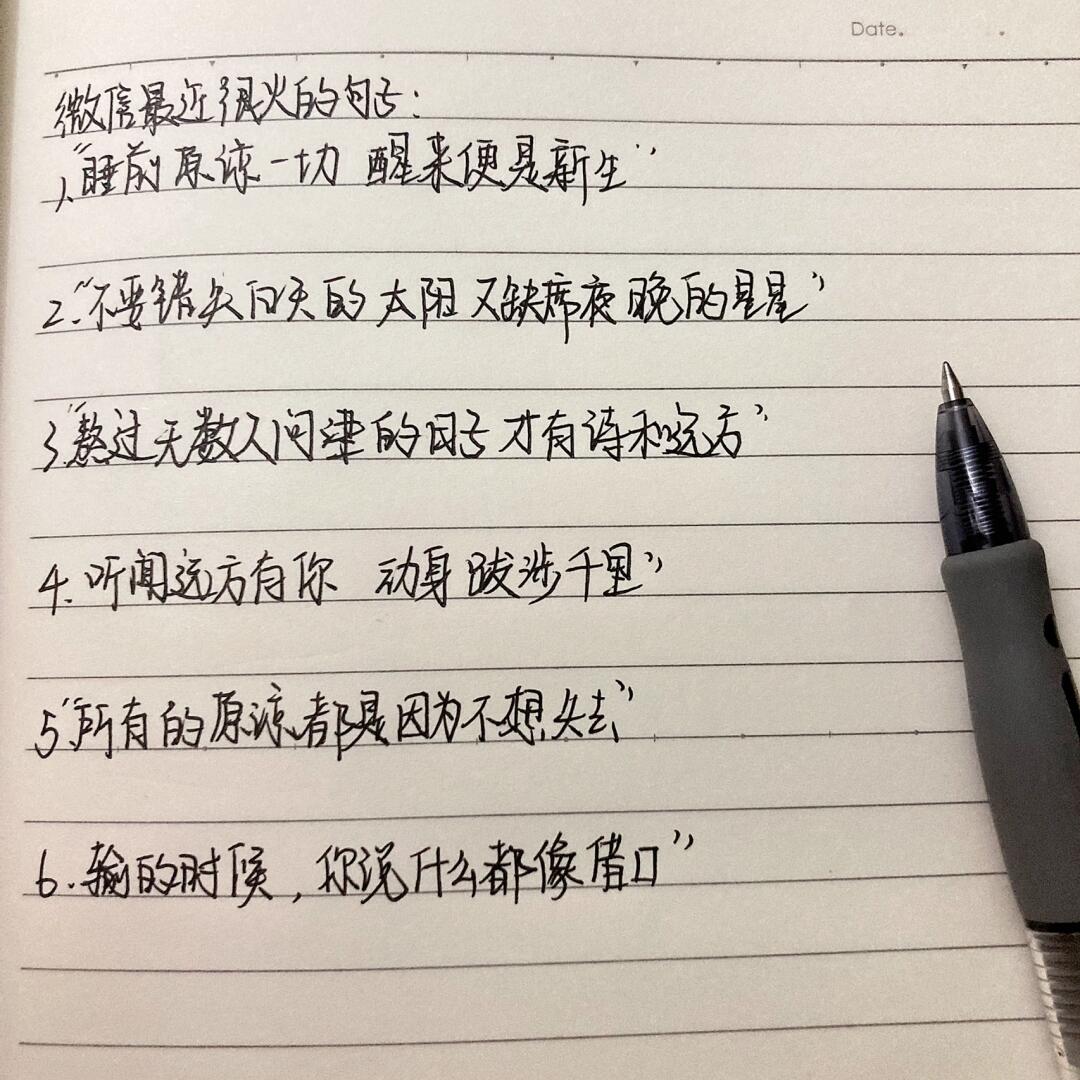 Date.
微信最近很火的句子:
1、“睡前原谅一切 醒来便是新生”
2.“不要错失白天的太阳 又缺席夜晚的星星”
3“熬过无数人问津的日子 才有诗和远方”
4. 听闻远方有你 动身跋涉千里”
5“所有的原谅都是因为不想失去”
6.输的时候,你说什么都像借口”